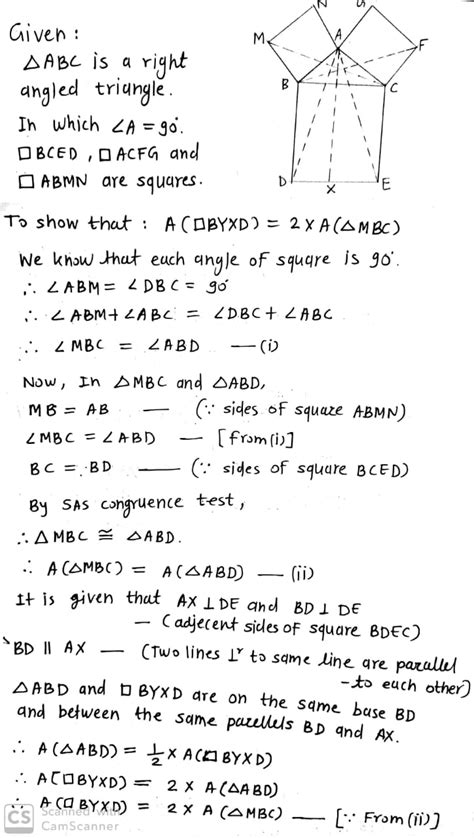 N
G
M
A
F
B
C
D
X
E
Given :
△ABC is a right
angled triangle.
In which ∠A = 90°.
□BCED, □ACFG and
□ ABMN are squares.
To show that : A(□BYXD) = 2 x A(△MBC)
We know that each angle of square is 90°.
∴ ∠ABM = ∠DBC = 90°
∴ ∠ABM + ∠ABC = ∠DBC + ∠ABC
∴ ∠MBC = ∠ABD — (i)
Now, In △MBC and △ABD,
MB = AB — (∵ sides of square ABMN)
∠MBC = ∠ABD — [from(i)]
BC = BD — (∵ sides of square BCED)
By SAS congruence test,
∴ △MBC ≅ △ABD.
∴ A(△MBC) = A(△ABD) — (ii)
It is given that AX ⊥ DE and BD ⊥ DE
— (adjecent sides of square BDEC)
BD || AX — (Two lines ⊥r to same line are parallel
-to each other)
△ABD and □ BYXD are on the same base BD
and between the same parellels BD and AX.
∴ A(△ABD) = 1/2 x A(□ BYXD)
∴ A(□BYXD) = 2 x A(△ABD)
∴ A(□ BYXD) = 2 x A(△MBC) — [∵ From(ii)]
CS Scanned with
CamScanner